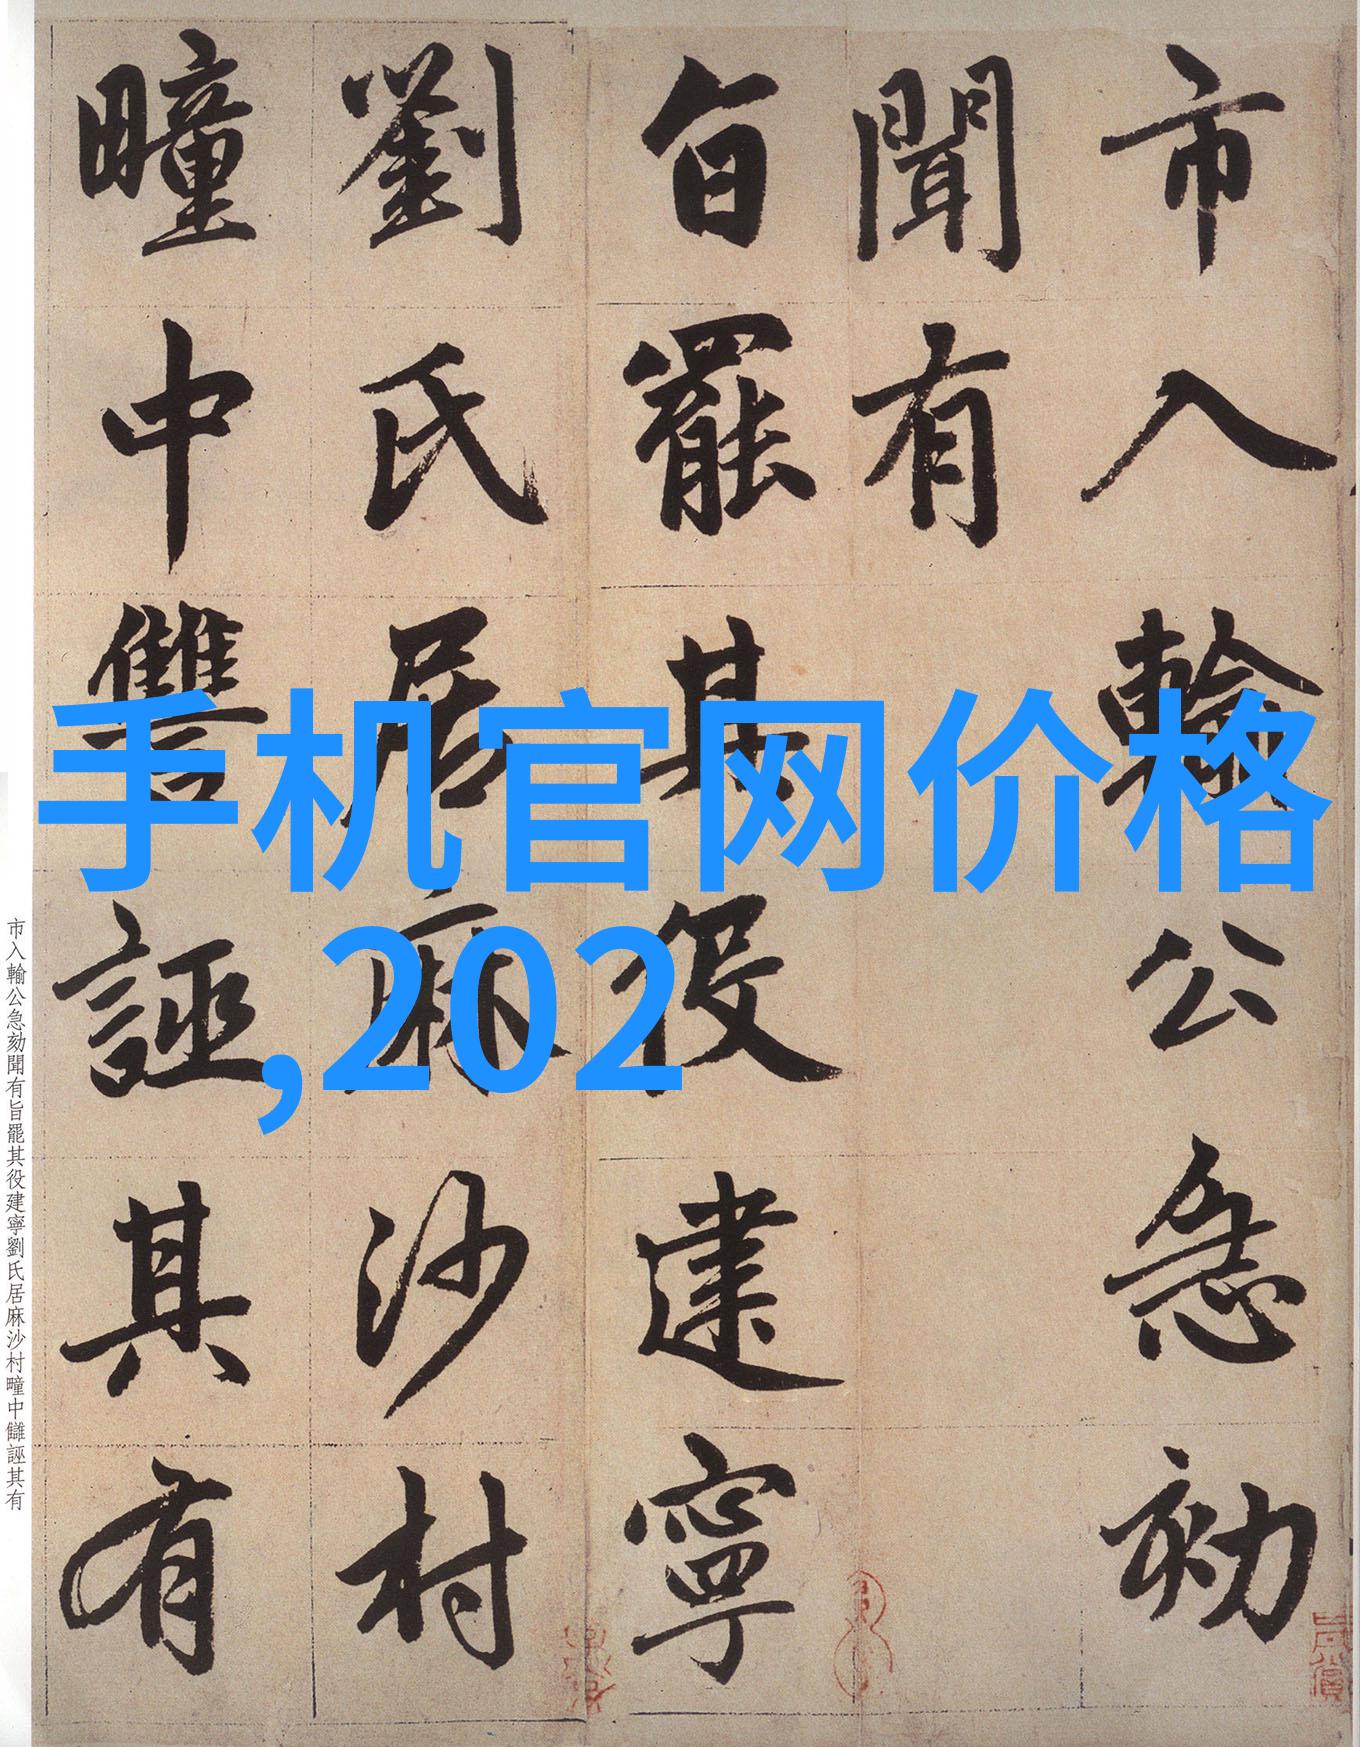 市入輸公急劾
聞有
旨罷其役建寧
劉氏居麻沙村
疃中讐誣其有
手机官网价格
,202
市入輸公急劾聞有旨罷其役建寧劉氏居麻沙村疃中讎誣其有